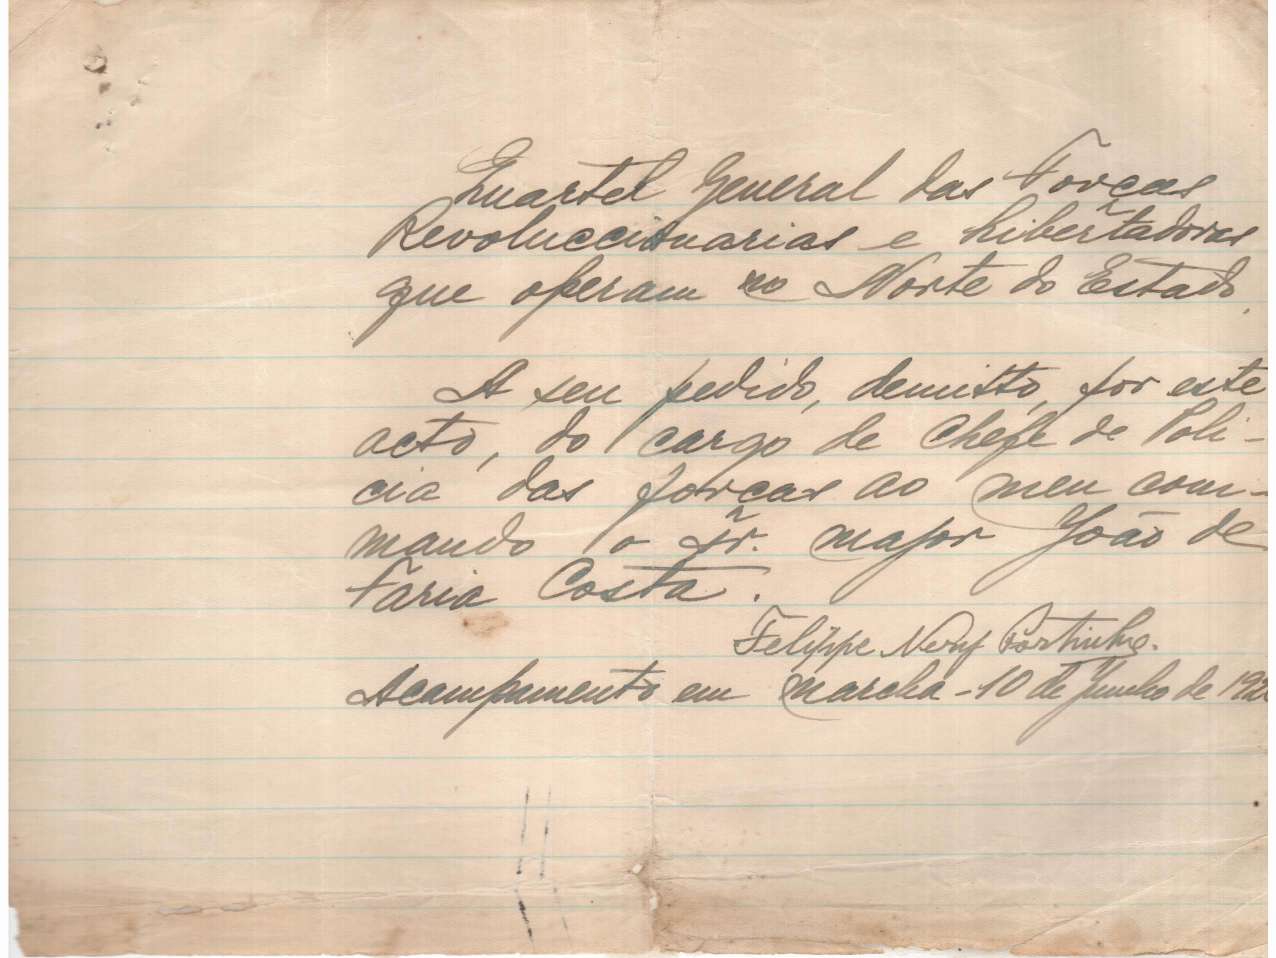 Quartel General das Forças
Revoluccionarias e Libertadoras
que operam no Norte do Estado.
A seu pedido, demitto, por este
acto, do cargo de Chefe de Poli-
cia das forças ao meu com-
mando o Sr. major João de
Faria Costa.
Felippe Nery Portinho.
Acampamento em marcha - 10 de Junho de